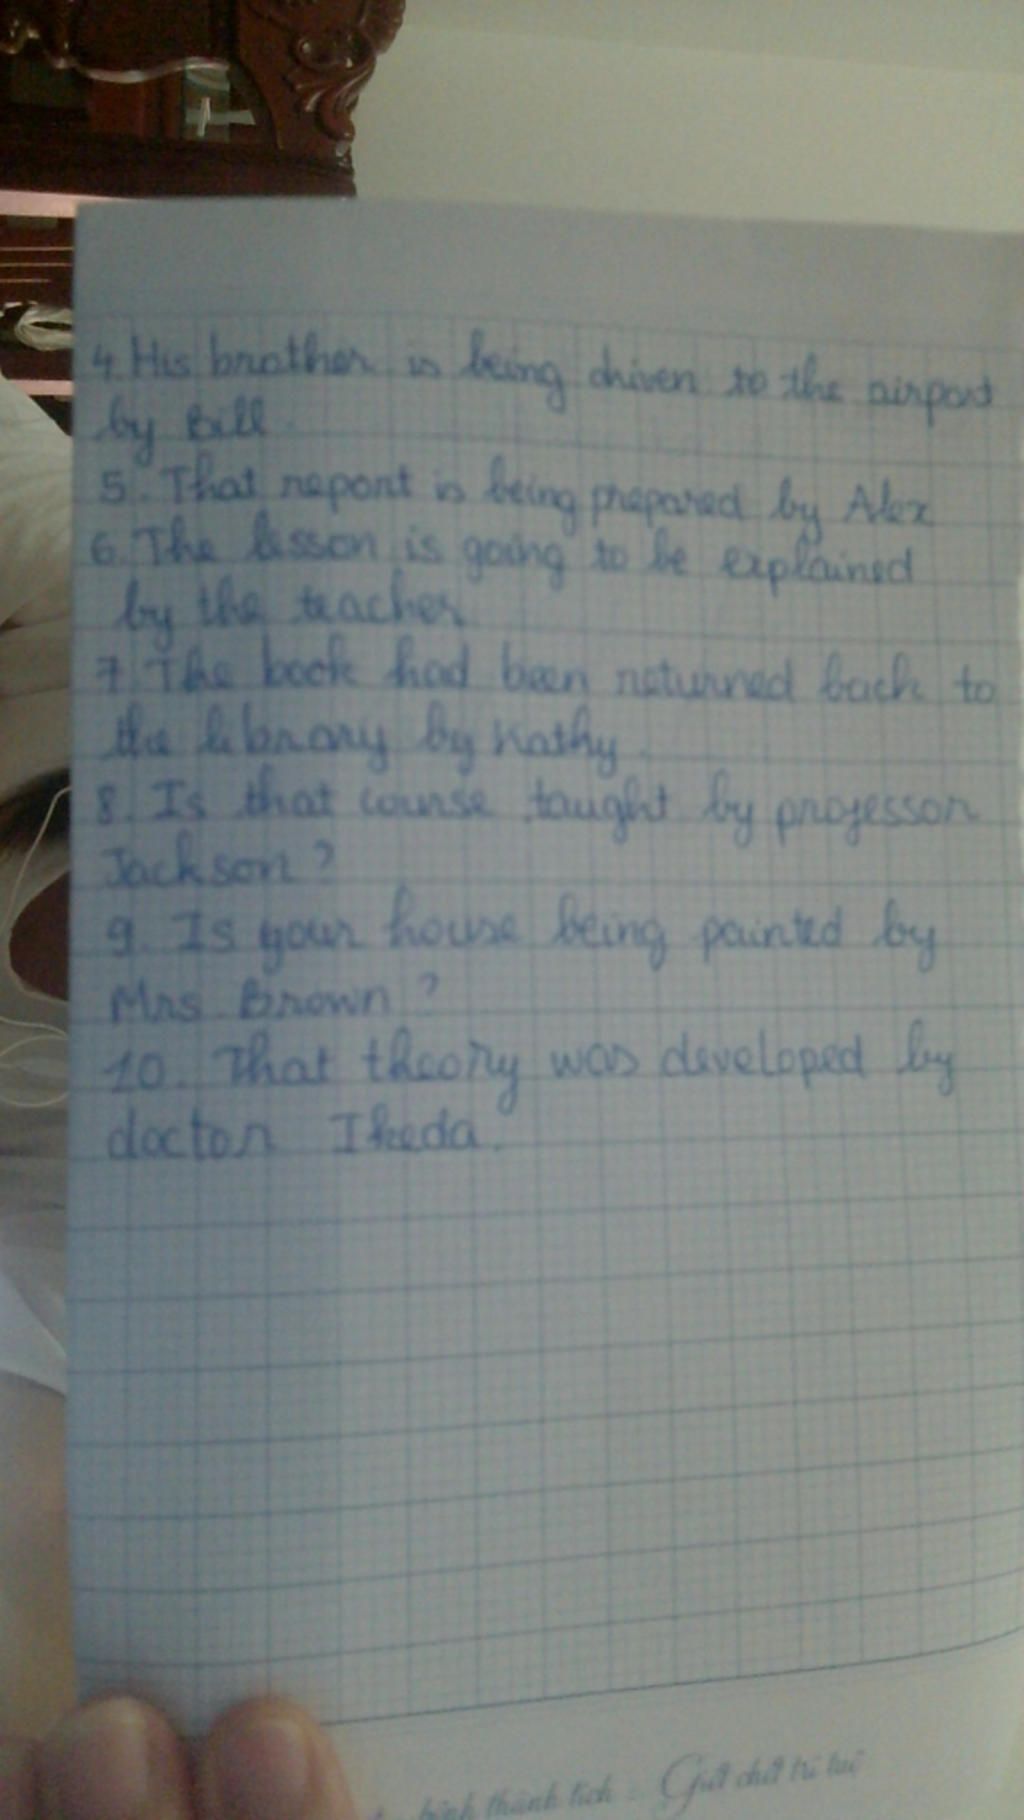 4. His brother is being driven to the airport
by Bill.
5. That report is being prepared by Alex
6. The lesson is going to be explained
by the teacher
7. The book had been returned back to
the library by Kathy.
8. Is that course taught by professor
Jackson?
9. Is your house being painted by
Mrs. Brown?
10. That theory was developed by
doctor Ikeda.
thành tích - Giữ chữ trí tuệ